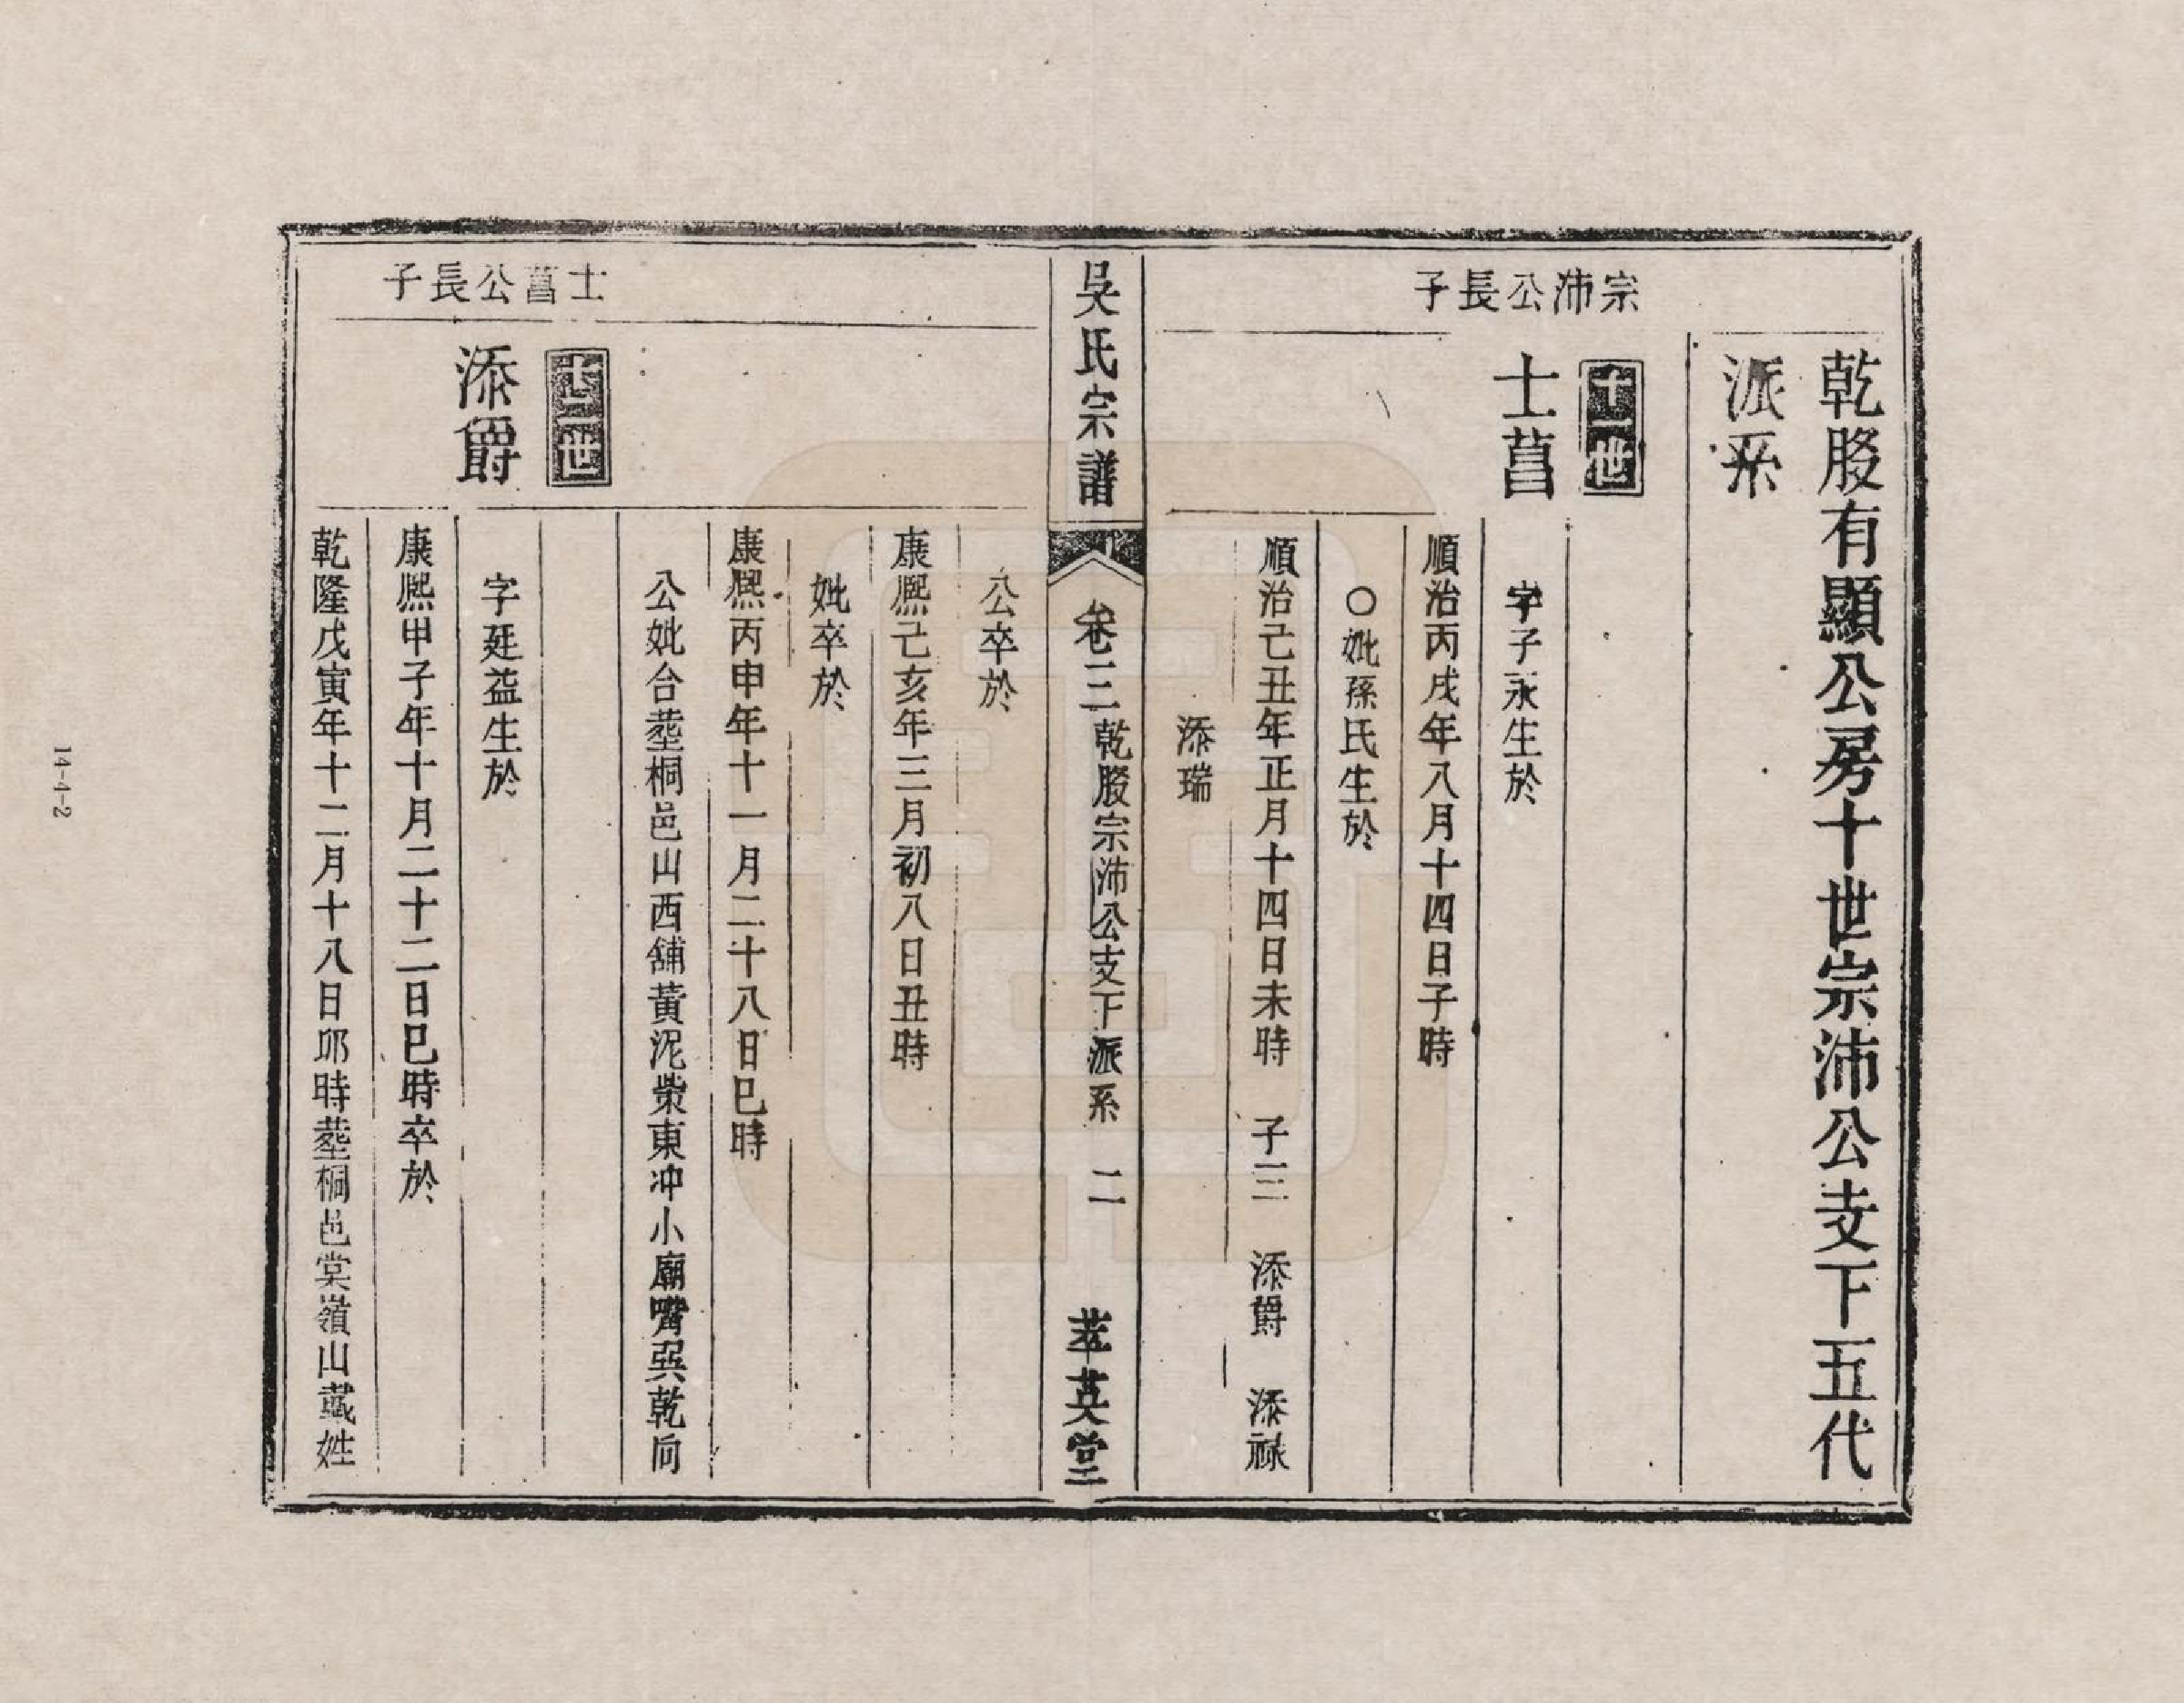 乾股有顯公房十世宗沛公支下五代
派系
宗沛公長子
十一世
士菖
字子永生於
順治丙戌年八月十四日子時
〇妣孫氏生於
順治己丑年正月十四日未時 子三 添爵 添祿
添瑞
吳氏宗譜
卷三 乾股宗沛公支下派系 二
萃英堂
公卒於
康熙己亥年三月初八日丑時
妣卒於
康熙丙申年十一月二十八日巳時
公妣合塟桐邑山西舖黃泥柴東冲小廟嘴巽乾向
士菖公長子
十二世
添爵
字廷益生於
康熙甲子年十月二十二日巳時卒於
乾隆戊寅年十二月十八日卯時塟桐邑棠嶺山戴姓
14-4-2